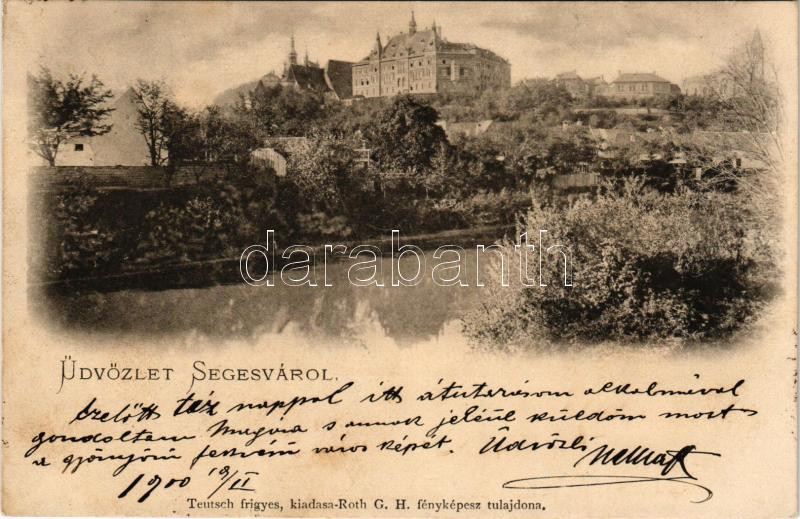 darabanth
ÜDVÖZLET SEGESVÁROL.
Ezelőtt tíz nappal itt átutazásom alkalmával
gondoltam Magára s annak jeléül küldöm most
a gyönyörű fekvésű város képét. Üdvözli
1900 18/II
Teutsch frigyes, kiadasa-Roth G. H. fényképesz tulajdona.